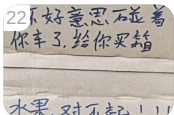 22
不好意思碰着
你车了,给你买箱
水果,对不起!!!